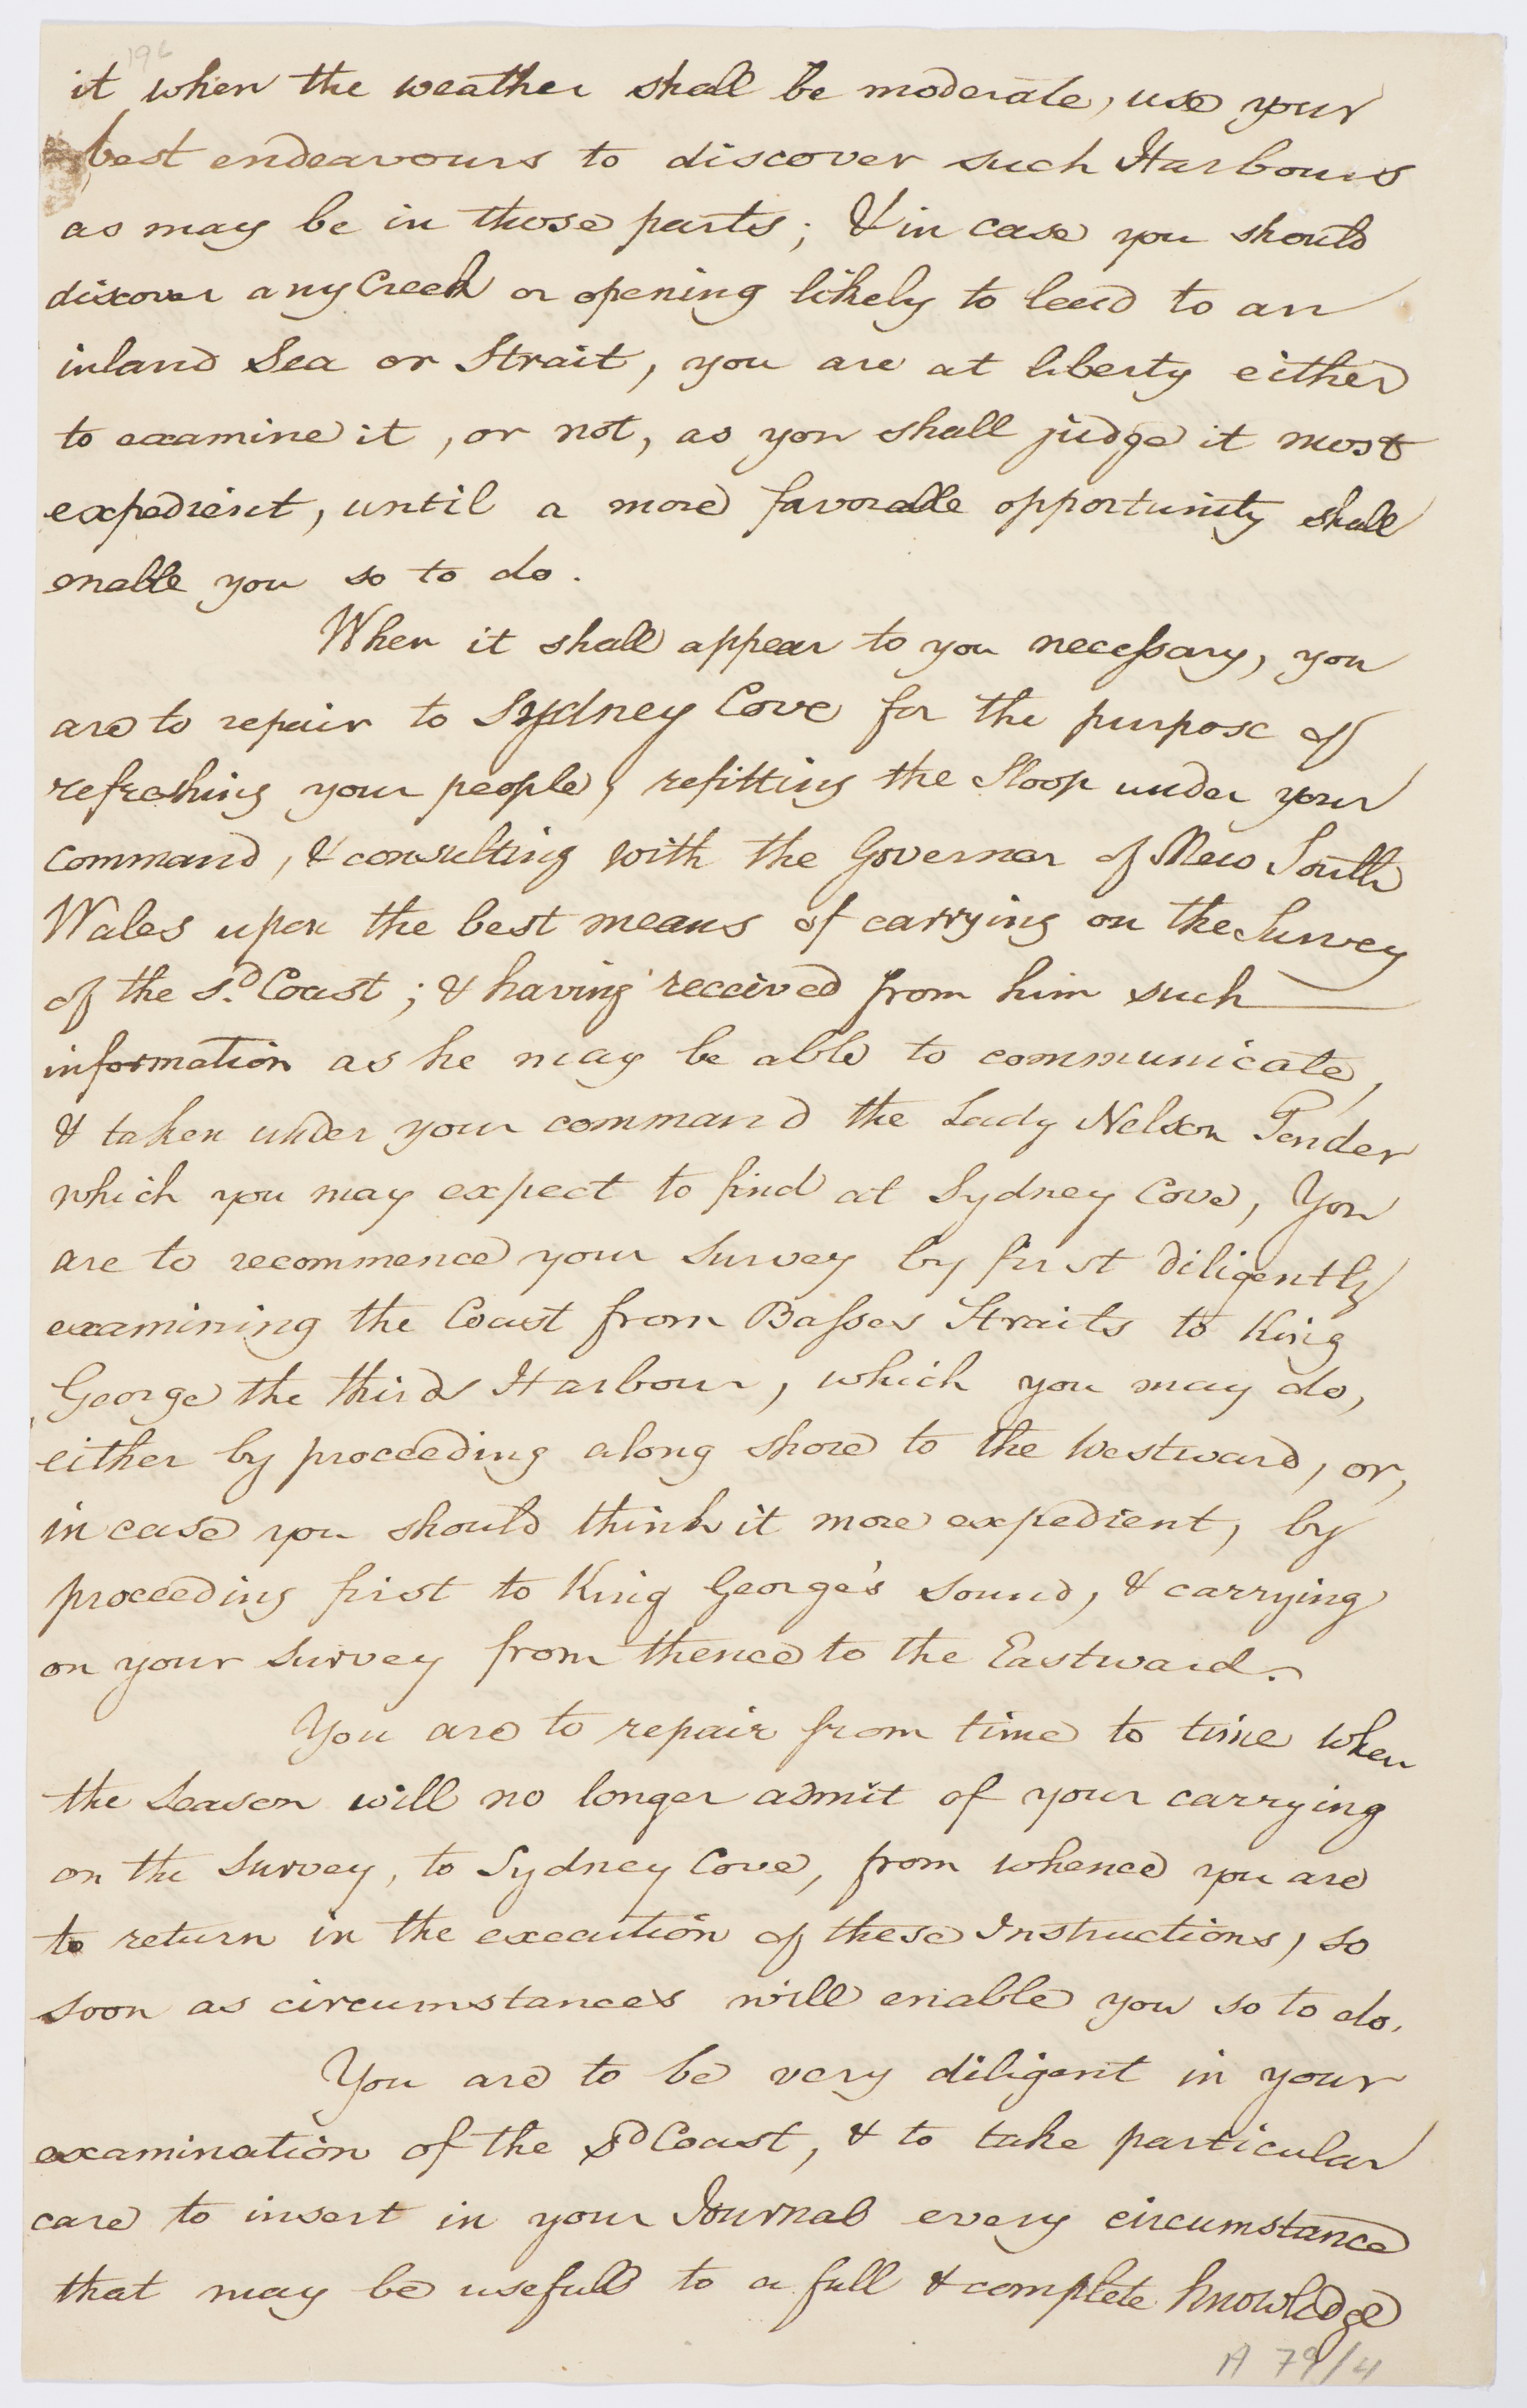 196
it when the weather shall be moderate, use your
best endeavours to discover such Harbours
as may be in those parts; & in case you should
discover any Creek or opening likely to lead to an
inland Sea or Strait, you are at liberty either
to examine it, or not, as you shall judge it most
expedient, until a more favorable opportunity shall
enable you so to do.
When it shall appear to you necessary, you
are to repair to Sydney Cove for the purpose of
refreshing your people, refitting the Sloop under your
command, & consulting with the Governor of New South
Wales upon the best means of carrying on the Survey
of the sd. Coast; & having received from him such
information as he may be able to communicate,
& taken under your command the Lady Nelson Tender
which you may expect to find at Sydney Cove, You
are to recommence your Survey by first diligently
examining the Coast from Basses Straits to King
George the third Harbour, which you may do,
either by proceeding along shore to the Westward, or,
in case you should think it more expedient, by
proceeding first to King George's Sound, & carrying
on your Survey from thence to the Eastward.
You are to repair from time to time when
the Season will no longer admit of your carrying
on the Survey, to Sydney Cove, from whence you are
to return in the execution of these Instructions, so
soon as circumstances will enable you so to do.
You are to be very diligent in your
examination of the sd Coast, & to take particular
care to insert in your Journal every circumstance
that may be usefull to a full & complete knowledge
A 79/4